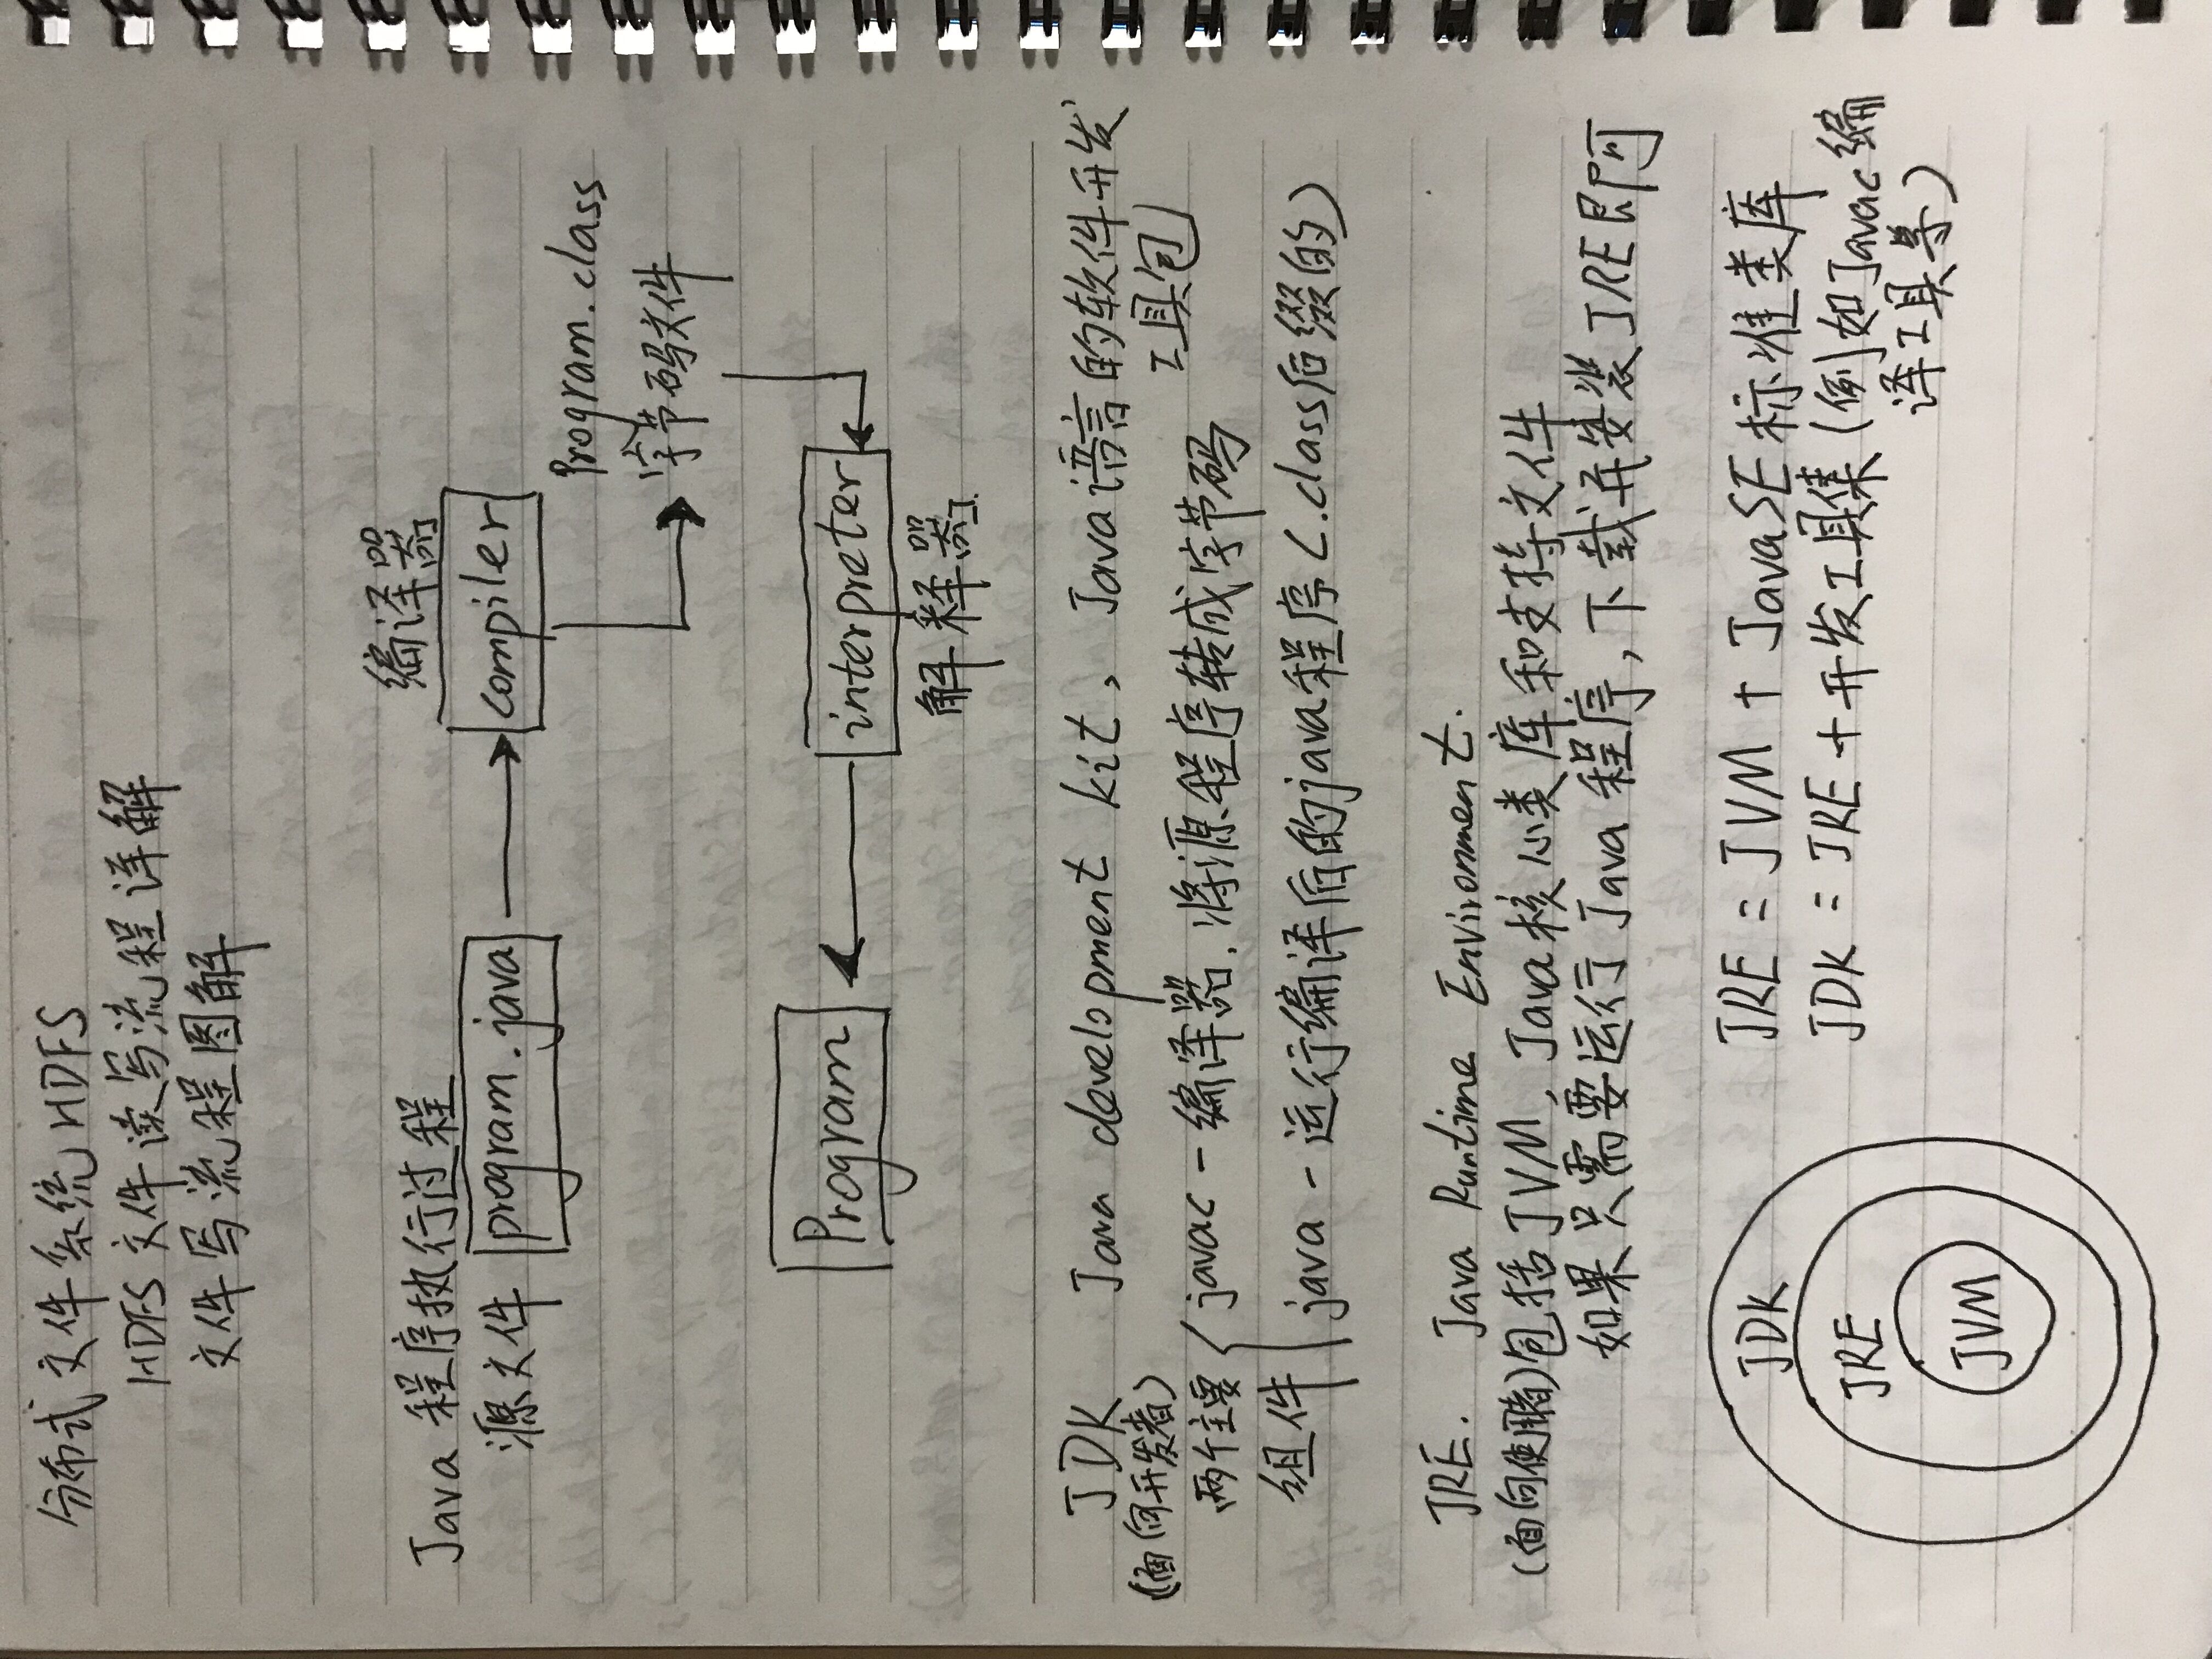 分布式文件系统HDFS
HDFS文件读写流程详解
文件写流程图解
编译器
Java 程序执行过程
源文件 program.java compiler
Program.class
字节码文件
Program interpreter
解释器
JDK Java development kit、Java语言的软件开发
(面向开发者) 工具包
两个主要 javac - 编译器.将源程序转成字节码
组件 java - 运行编译后的java程序(.class后缀的)
JRE. Java Runtime Environment.
(面向使用者)包括JVM,Java核心类库和支持文件
如果只需要运行Java程序,下载并安装JRE即可
JDK
JRE
JVM
JRE = JVM + JavaSE标准类库
JDK = JRE + 开发工具集(例如Javac编
译工具等)